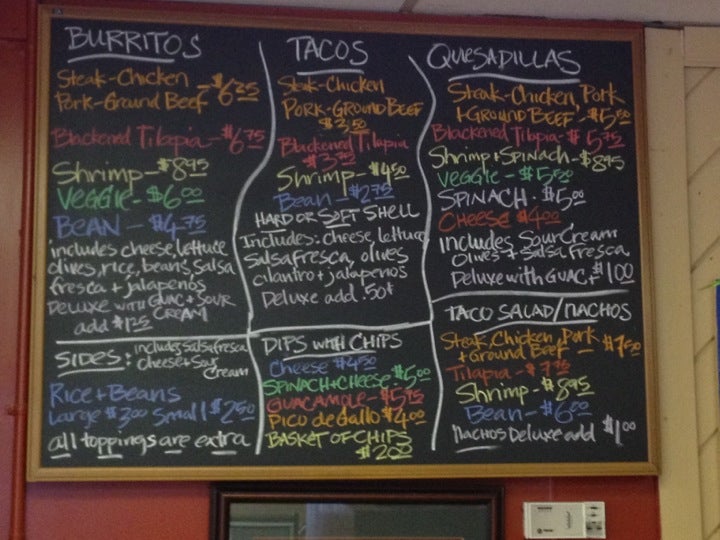 BURRITOS
Steak-Chicken
Pork-Ground Beef - $6.25
Blackened Tilapia - $6.75
Shrimp - $8.95
Veggie - $6.00
BEAN - $4.75
includes cheese, lettuce
olives, rice, beans, salsa
fresca + jalapeños
Deluxe with GUAC + SOUR
CREAM
add $1.25
SIDES: includes salsa fresca
+ cheese + Sour
Cream
Rice + Beans
Large $3.00 Small $2.50
all toppings are extra
TACOS
Steak-Chicken
PORK-GROUND BEEF
$3.50
Blackened Tilapia
$3.75
Shrimp - $4.50
Bean - $2.75
HARD OR SOFT SHELL
Includes: cheese, lettuce
Salsa fresca, olives
cilantro + jalapeños
Deluxe add .50¢
DIPS with CHIPS
Cheese $4.50
SPINACH + CHEESE $6.00
GUACAMOLE - $5.75
Pico de Gallo $4.00
BASKET OF CHIPS
$2.00
QUESADILLAS
Steak-Chicken, Pork
+ GROUND BEEF - $5.50
Blackened Tilapia - $5.75
Shrimp + Spinach - $8.95
Veggie - $5.00
SPINACH - $5.00
Cheese $4.00
Includes Sour Cream
Olives + Salsa Fresca
Deluxe with GUAC + $1.00
TACO SALAD/NACHOS
Steak, Chicken, Pork
+ Ground Beef - $7.50
Tilapia - $7.75
Shrimp - $8.95
Bean - $6.00
Nachos Deluxe add $1.00